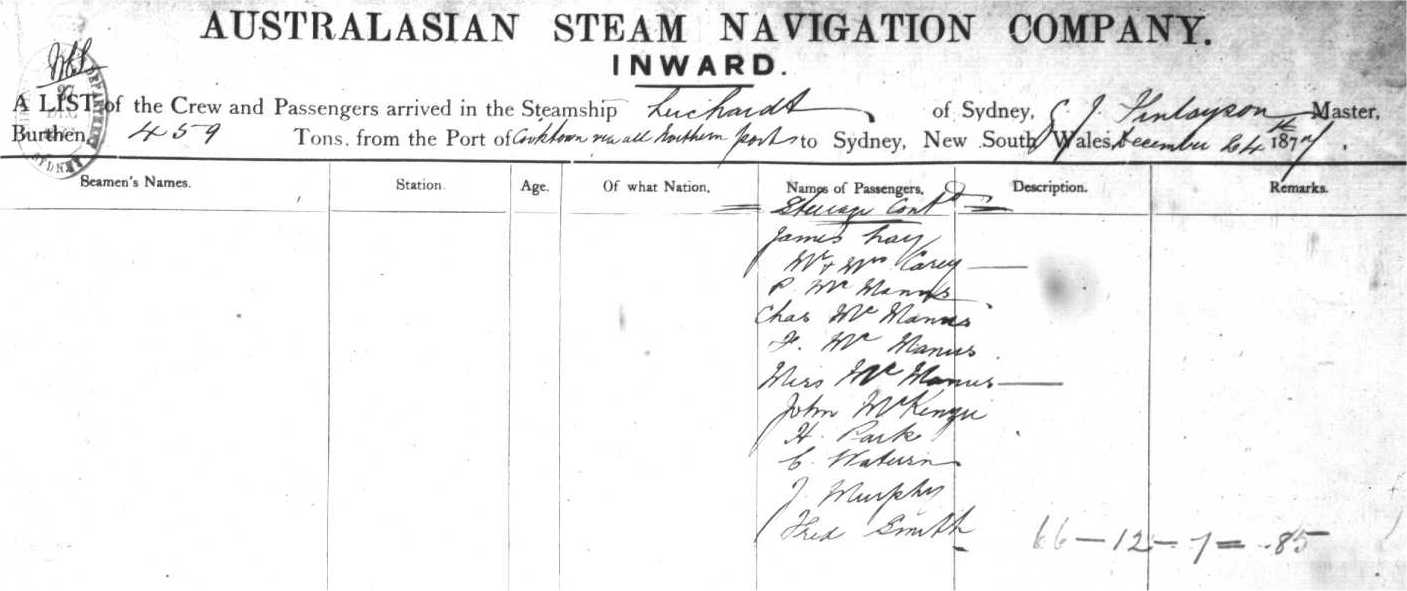 AUSTRALASIAN STEAM NAVIGATION COMPANY.
INWARD.
A LIST of the Crew and Passengers arrived in the Steamship Luchardt of Sydney, C. J. Finlayson Master,
Burthen 459 Tons. from the Port of Cooktown via all Northern Ports to Sydney, New South Wales, December 24th 1877.
Seamen's Names. Station. Age. Of what Nation. Names of Passengers. Description. Remarks.
Steerage Contd
James
Mr & Mrs Carey
P. McManus
Chas McManus
F. McManus
Miss McManus
John McKenzie
H. Park
C.
J. Murphy
Fred Smith
66-12-7= 85